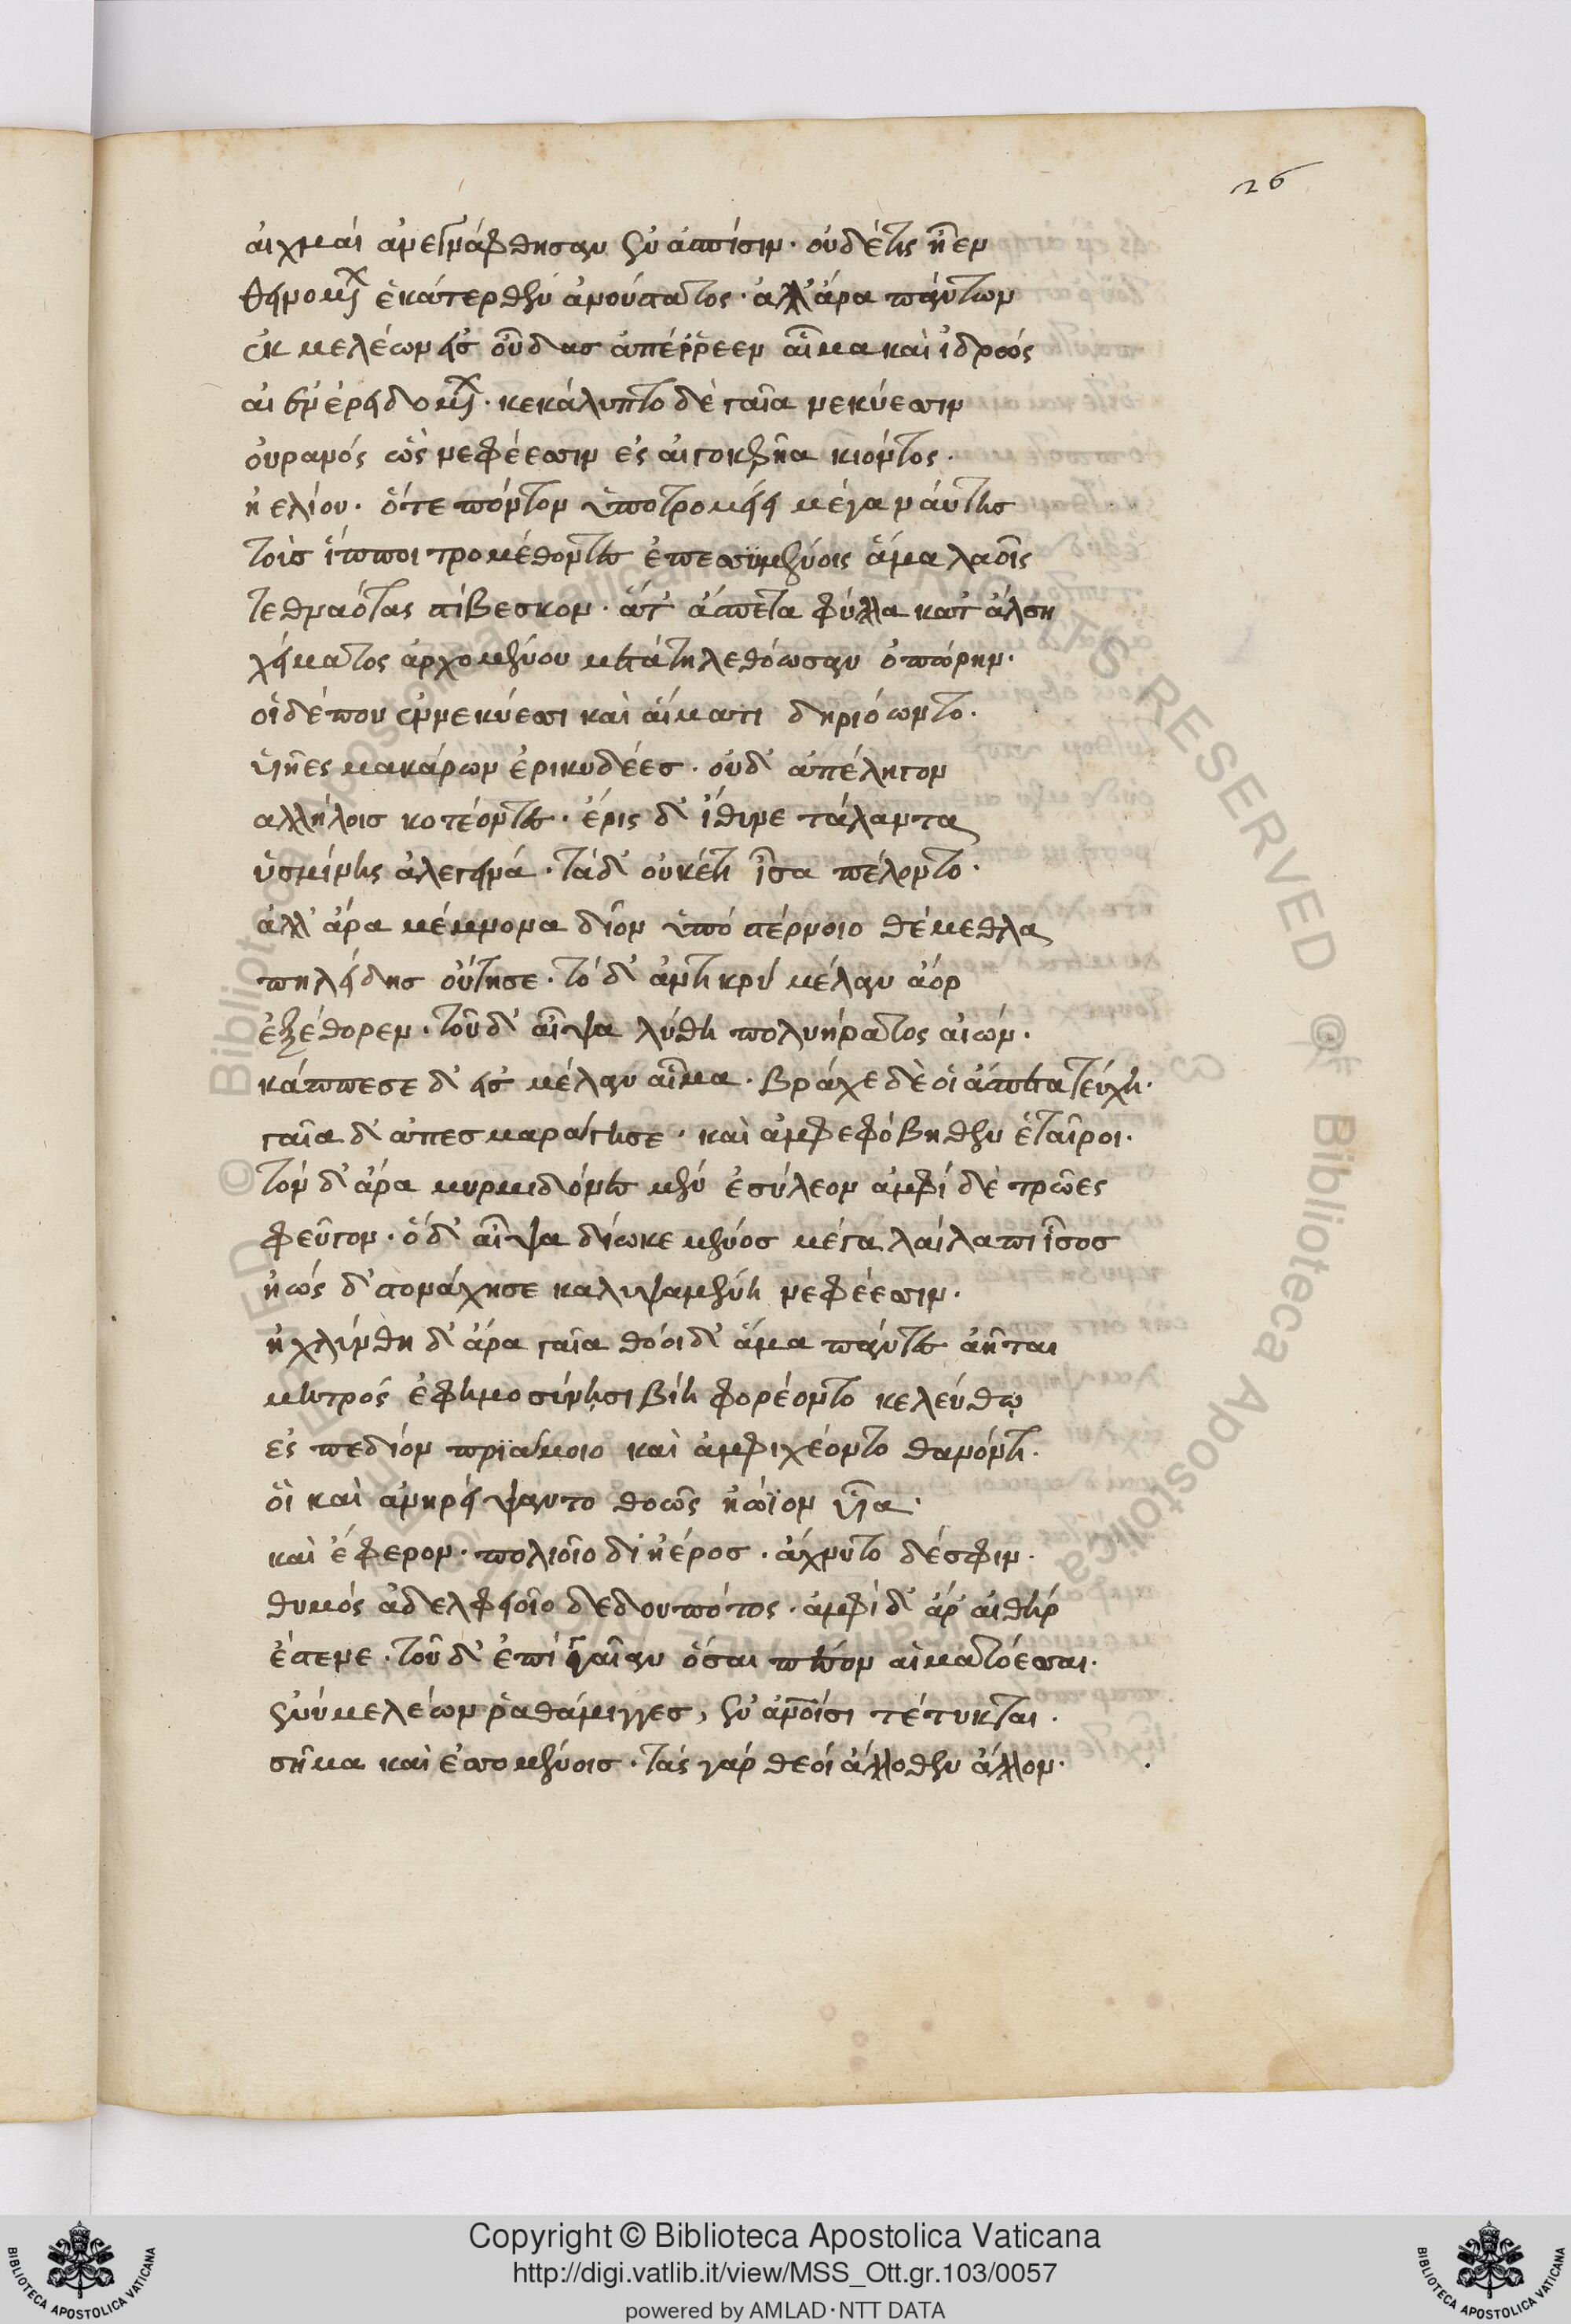 26
αἰχμαὶ ἀνεγνάφθησαν ἐν ἀσπίσιν· οὐδέ τις ἦεν
θεινομένων ἑκάτερθεν ἀνούτατος· ἀλλ' ἄρα πάντων
ἐκ μελέων εἰς οὖδας ἀπέρρεεν αἷμα καὶ ἱδρώς
αἰὲν ἐρειδομένων· κεκάλυπτο δὲ γαῖα νεκύεσσιν
οὐρανός ὡς νεφέεσσιν ἐς αἰγοκερῆα κιόντος·
ἠελίου· ὅτε πόντον ὑποτρομέει μέγα ναύτης
τοὺς ἵπποι τρομέθοντες ἐπεσσυμένοις ἅμα λαοῖς
τεθναότας στίβεσκον· ἅτ' ἄσπετα φύλλα κατ' ἄλση
χείματος ἀρχομένου μετὰ τηλεθόωσαν ὀπώρην·
οἱ δέ που ἐν νεκύεσσι καὶ αἵματι δηριόωντο·
υἱῆες μακάρων ἐρικυδέες· οὐδ' ἀπέληγον
ἀλλήλοις κοτέοντες· ἔρις δ' ἴθυνε τάλαντα
ὑσμίνης ἀλεγεινά· τὰ δ' οὐκέτι ἶσα πέλοντο·
ἀλλ' ἄρα μέμνονα δῖον ὑπὸ στέρνοιο θέμεθλα
πηλείδης οὔτησε· τὸ δ' ἀντικρὺ μέλαν ἄορ
ἐξέθορεν· τοῦ δ' αἶψα λύθη πολυήρατος αἰών·
κάππεσε δ' εἰς μέλαν αἷμα· βράχε δέ οἱ ἄσπετα τεύχη·
γαῖα δ' ἀπεσμαράγησε· καὶ ἀμφεφόβηθεν ἑταῖροι·
τὸν δ' ἄρα μυρμιδόνες μὲν ἐσύλεον ἀμφὶ δὲ τρῶες
φεῦγον· ὁ δ' αἶψα δίωκε μένος μέγα λαίλαπι ἶσος
ἠώς δ' στονάχησε καλυψαμένη νεφέεσσιν·
ἠχλύνθη δ' ἄρα γαῖα θοοὶ δ' ἅμα πάντες ἀῆται
μητρός ἐφημοσύνῃσι βίῃ φορέοντο κελεύθῳ
ἐς πεδίον πριάμοιο καὶ ἀμφιχέοντο θανόντι·
οἳ καὶ ἀνηρείψαντο θοῶς ἠώϊον υἷα·
καὶ ἔφερον· πολιοῖο δι' ἠέρος· ἄχνυτο δέ σφιν·
θυμός ἀδελφειοῖο δεδουπότος· ἀμφὶ δ' ἄρ' αἰθήρ
ἔστενε· τοῦ δ' ἐπὶ γαῖαν ὅσαι πέσον αἱματόεσσαι·
ἐν μελέων ῥαθάμιγγες, ἐν ἀνοῖσι τέτυκται·
σῆμα καὶ ἐσσομένοις· τὰς γὰρ θεοὶ ἄλλοθεν ἄλλον·
© Biblioteca Apostolica Vaticana
ALL RIGHTS RESERVED
Copyright © Biblioteca Apostolica Vaticana
http://digi.vatlib.it/view/MSS_Ott.gr.103/0057
powered by AMLAD·NTT DATA
BIBLIOTECA APOSTOLICA VATICANA
BIBLIOTECA APOSTOLICA VATICANA